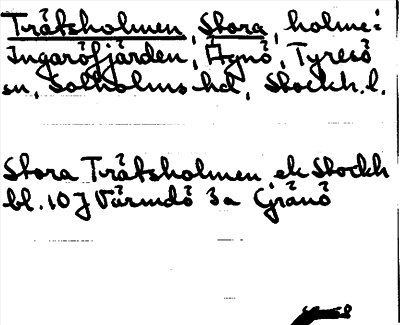 Träksholmen, Stora, holme i
Ingaröfjärden, Ägnö, Tyresö
sn, Sotholms hd, Stockh. l.
Stora Träksholmen ek Stockh
bl. 10 J Värmdö 3a Gränö